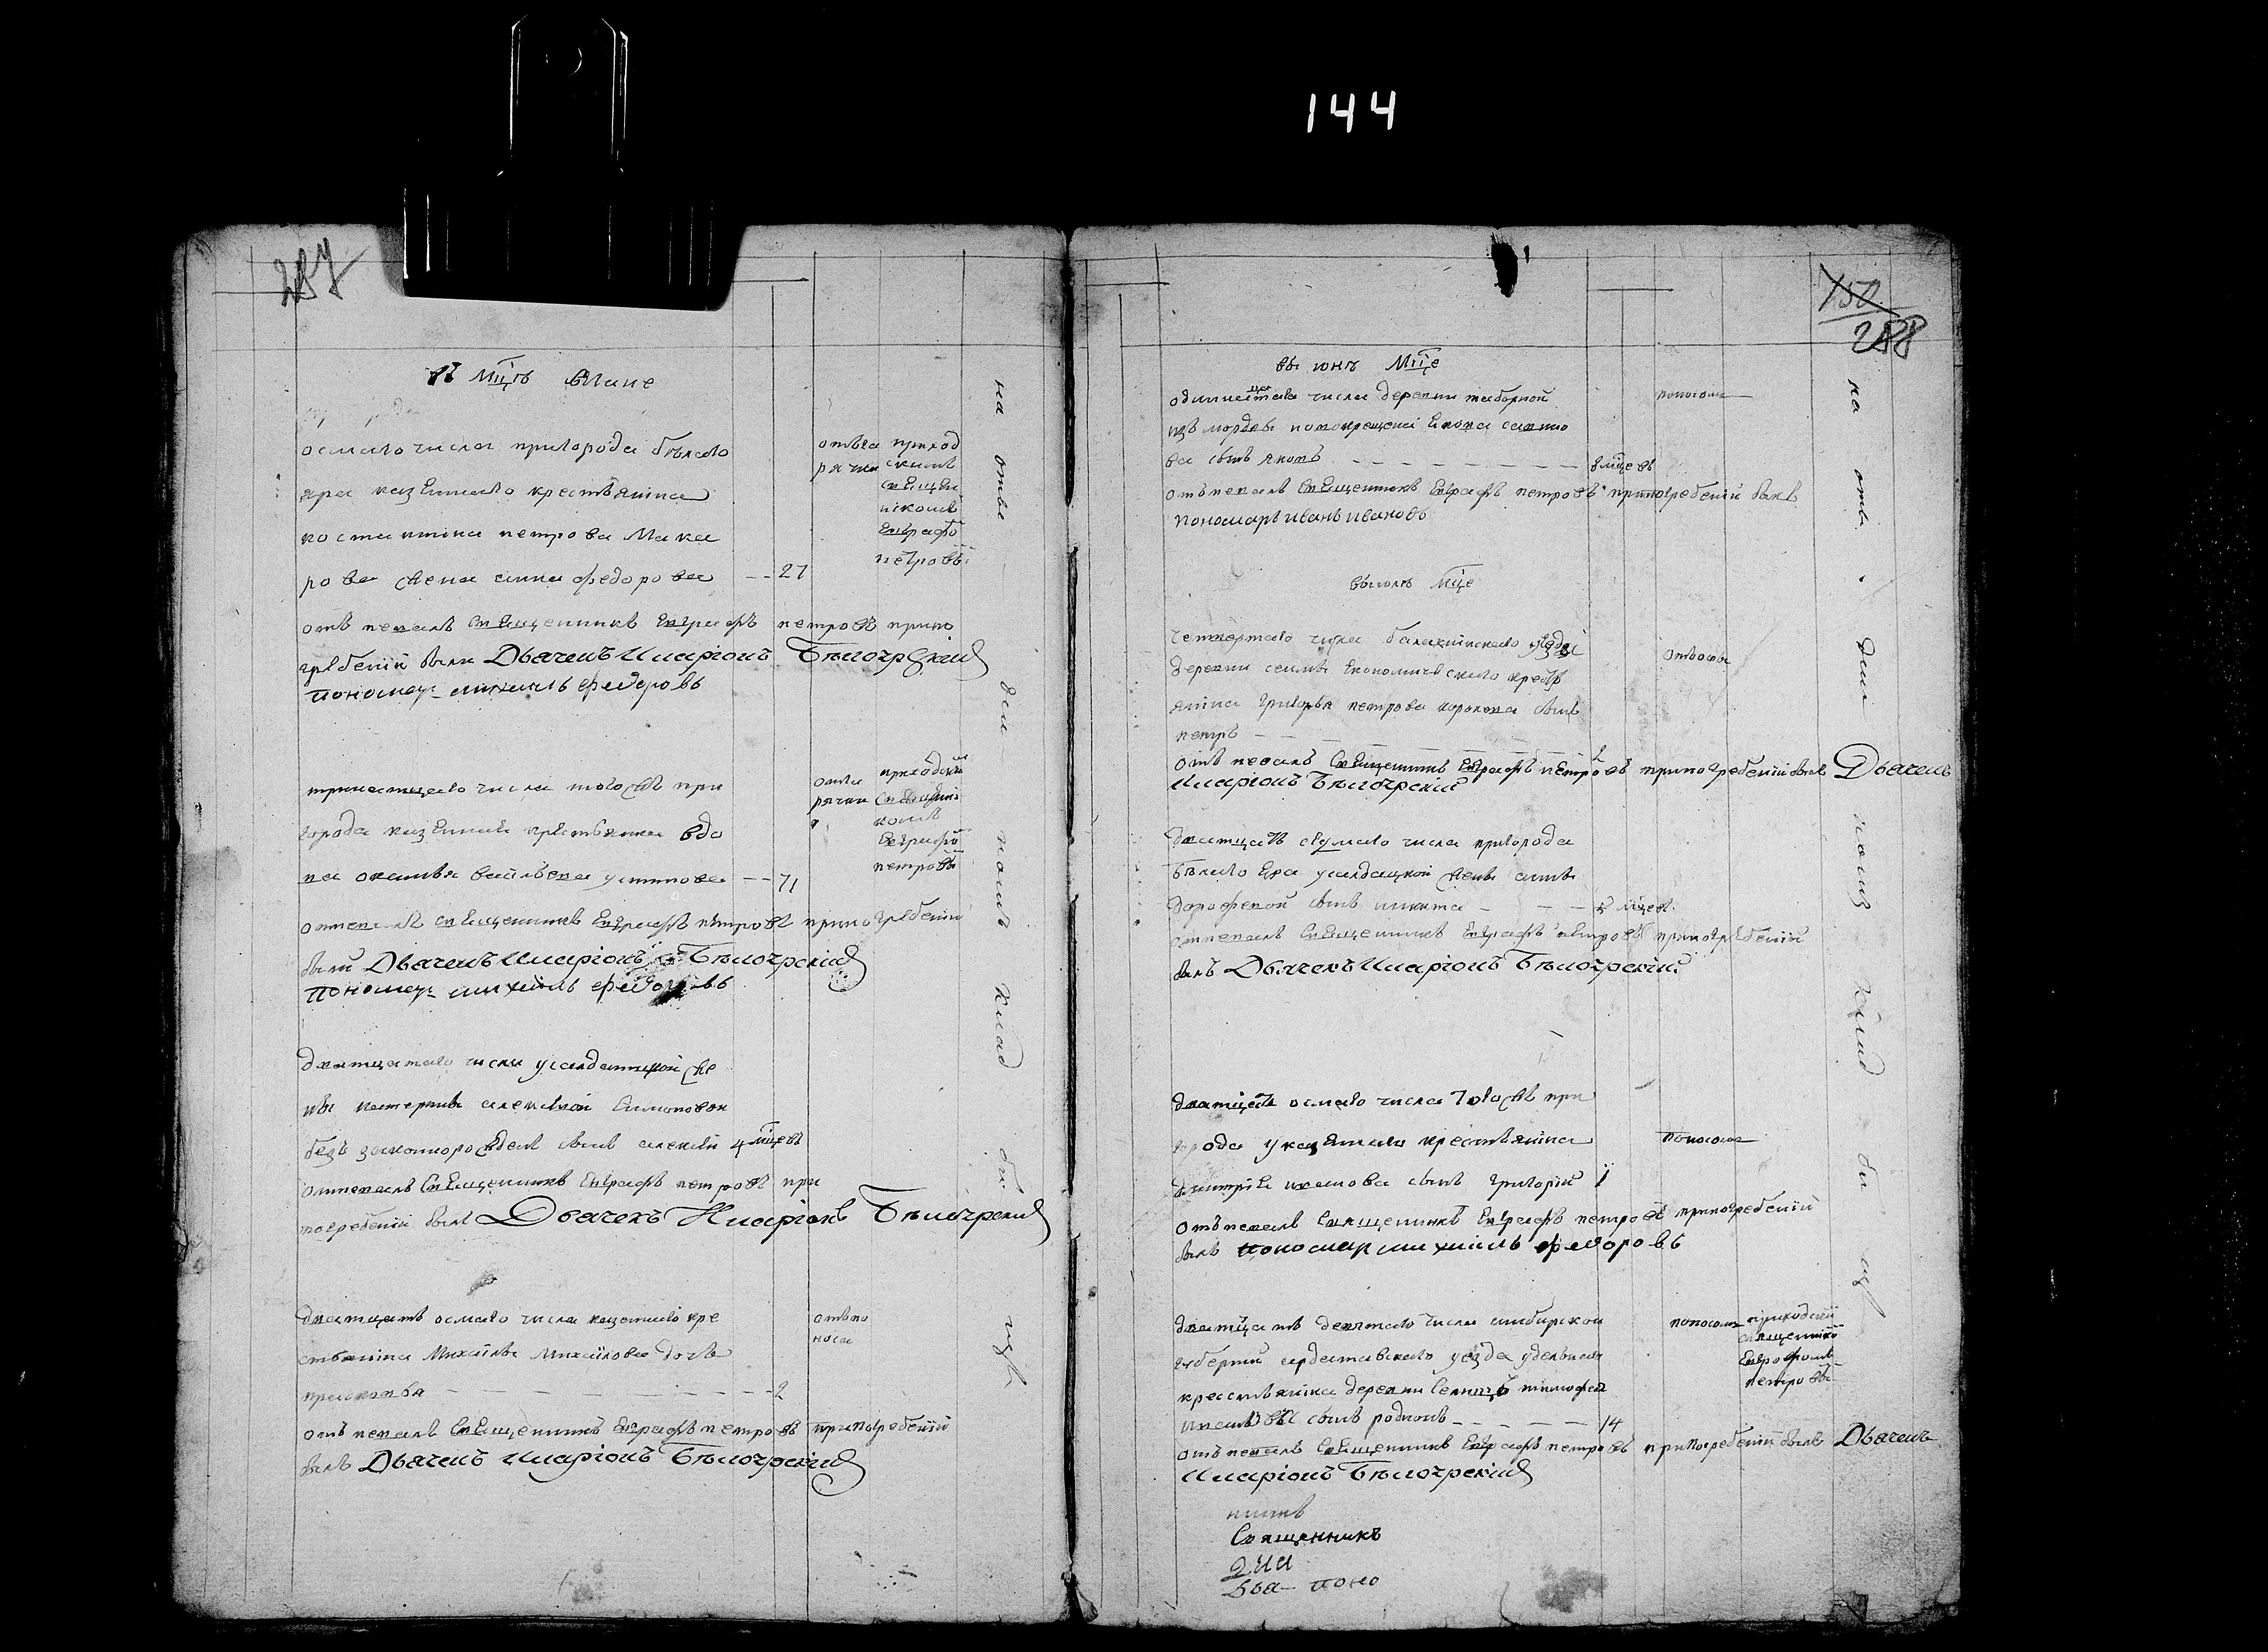 144
287
въ мцѣ маие
осмаго числа пригорода бѣлаго
яра казеннаго крестьянина
костантина петрова Мака
рова жена анна федорова - - 27
отъ горя
чки
приход
скимъ
священ
никомъ
Евграфо
петровы
отъ певалъ священникъ Евграфъ петровъ припо
гребении были Дьячекъ Иларіонъ Бѣлоярскій
пономар михаилъ федоровъ
тринатцатаго числа тогожъ при
города казенная крестьянка вдо
ва ... васильева устинова - - 71
приходски
священни
комъ
Евграфо
петровы
отпевалъ священникъ Евграфъ петровъ припогребении
были Дьячекъ Иларіонъ Бѣлоярскій
пономар михаилъ федоровъ
дватцатаго числа усалдатской же
нки катерины алексѣвой Симоновой
безъ законнорожденъ сынъ алексѣй 4 мцевъ
отпевалъ священникъ Евграфъ петровъ при
погребении былъ Дьячекъ Иларіонъ Бѣлоярскій
дватцать осмаго числа казеннаго кре
стьянина Михайлы Михайлова дочь
прасковья - - - - - - 2
отъ по
носа
отъ певалъ священникъ Евграфъ петровъ припогребении
былъ Дьячекъ Иларіонъ Бѣлоярскій
на отве
денномъ
клад
би
щѣ
150
288
въ июнѣ мце
одиннатцатаго числа деревни таборной
изъ мордвы новокрещена
ва сынъ якотъ - - - - - - 8 мцевъ
поносомъ
отъ певалъ священникъ Евграфъ петровъ припогребении былъ
пономарь иванъ ивановъ
въ июлѣ мце
четвертаго числа балахнинскаго уезда
деревни Економическаго крестья
янина Григорья петрова сынъ
петръ - - - - - - 2
отъ певалъ священникъ Евграфъ петровъ припогребении былъ Дьячекъ
Иларіонъ Бѣлоярскій
дватцать седмаго числа пригорода
Бѣлаго Яра усалдацкой жены анны
дорофевой сынъ никита - - - 5 мцевъ
отпевалъ священникъ Евграфъ петровъ припогребении
былъ Дьячекъ Иларіонъ Бѣлоярскій
дватцать осмаго числа Тогожъ при
города указеннаго крестьянина
дмитрея иванова сынъ григорій 1
поносомъ
отъ певалъ священникъ Евграфъ петровъ припогребении
былъ пономар михаилъ федоровъ
дватцать девятаго числа симбирской
губернии ардатовскаго уезда удельнаго
крестьянина деревни тимофея
сынъ родионъ - - - - - 14
поносомъ
приходский
священникъ
Евграфомъ
петровы
отъ певалъ священникъ Евграфъ петровъ припогребении былъ Дьячекъ
Иларіонъ Бѣлоярскій
Священникъ
Дья- поно
на отве
денномъ
клад
би
щѣ